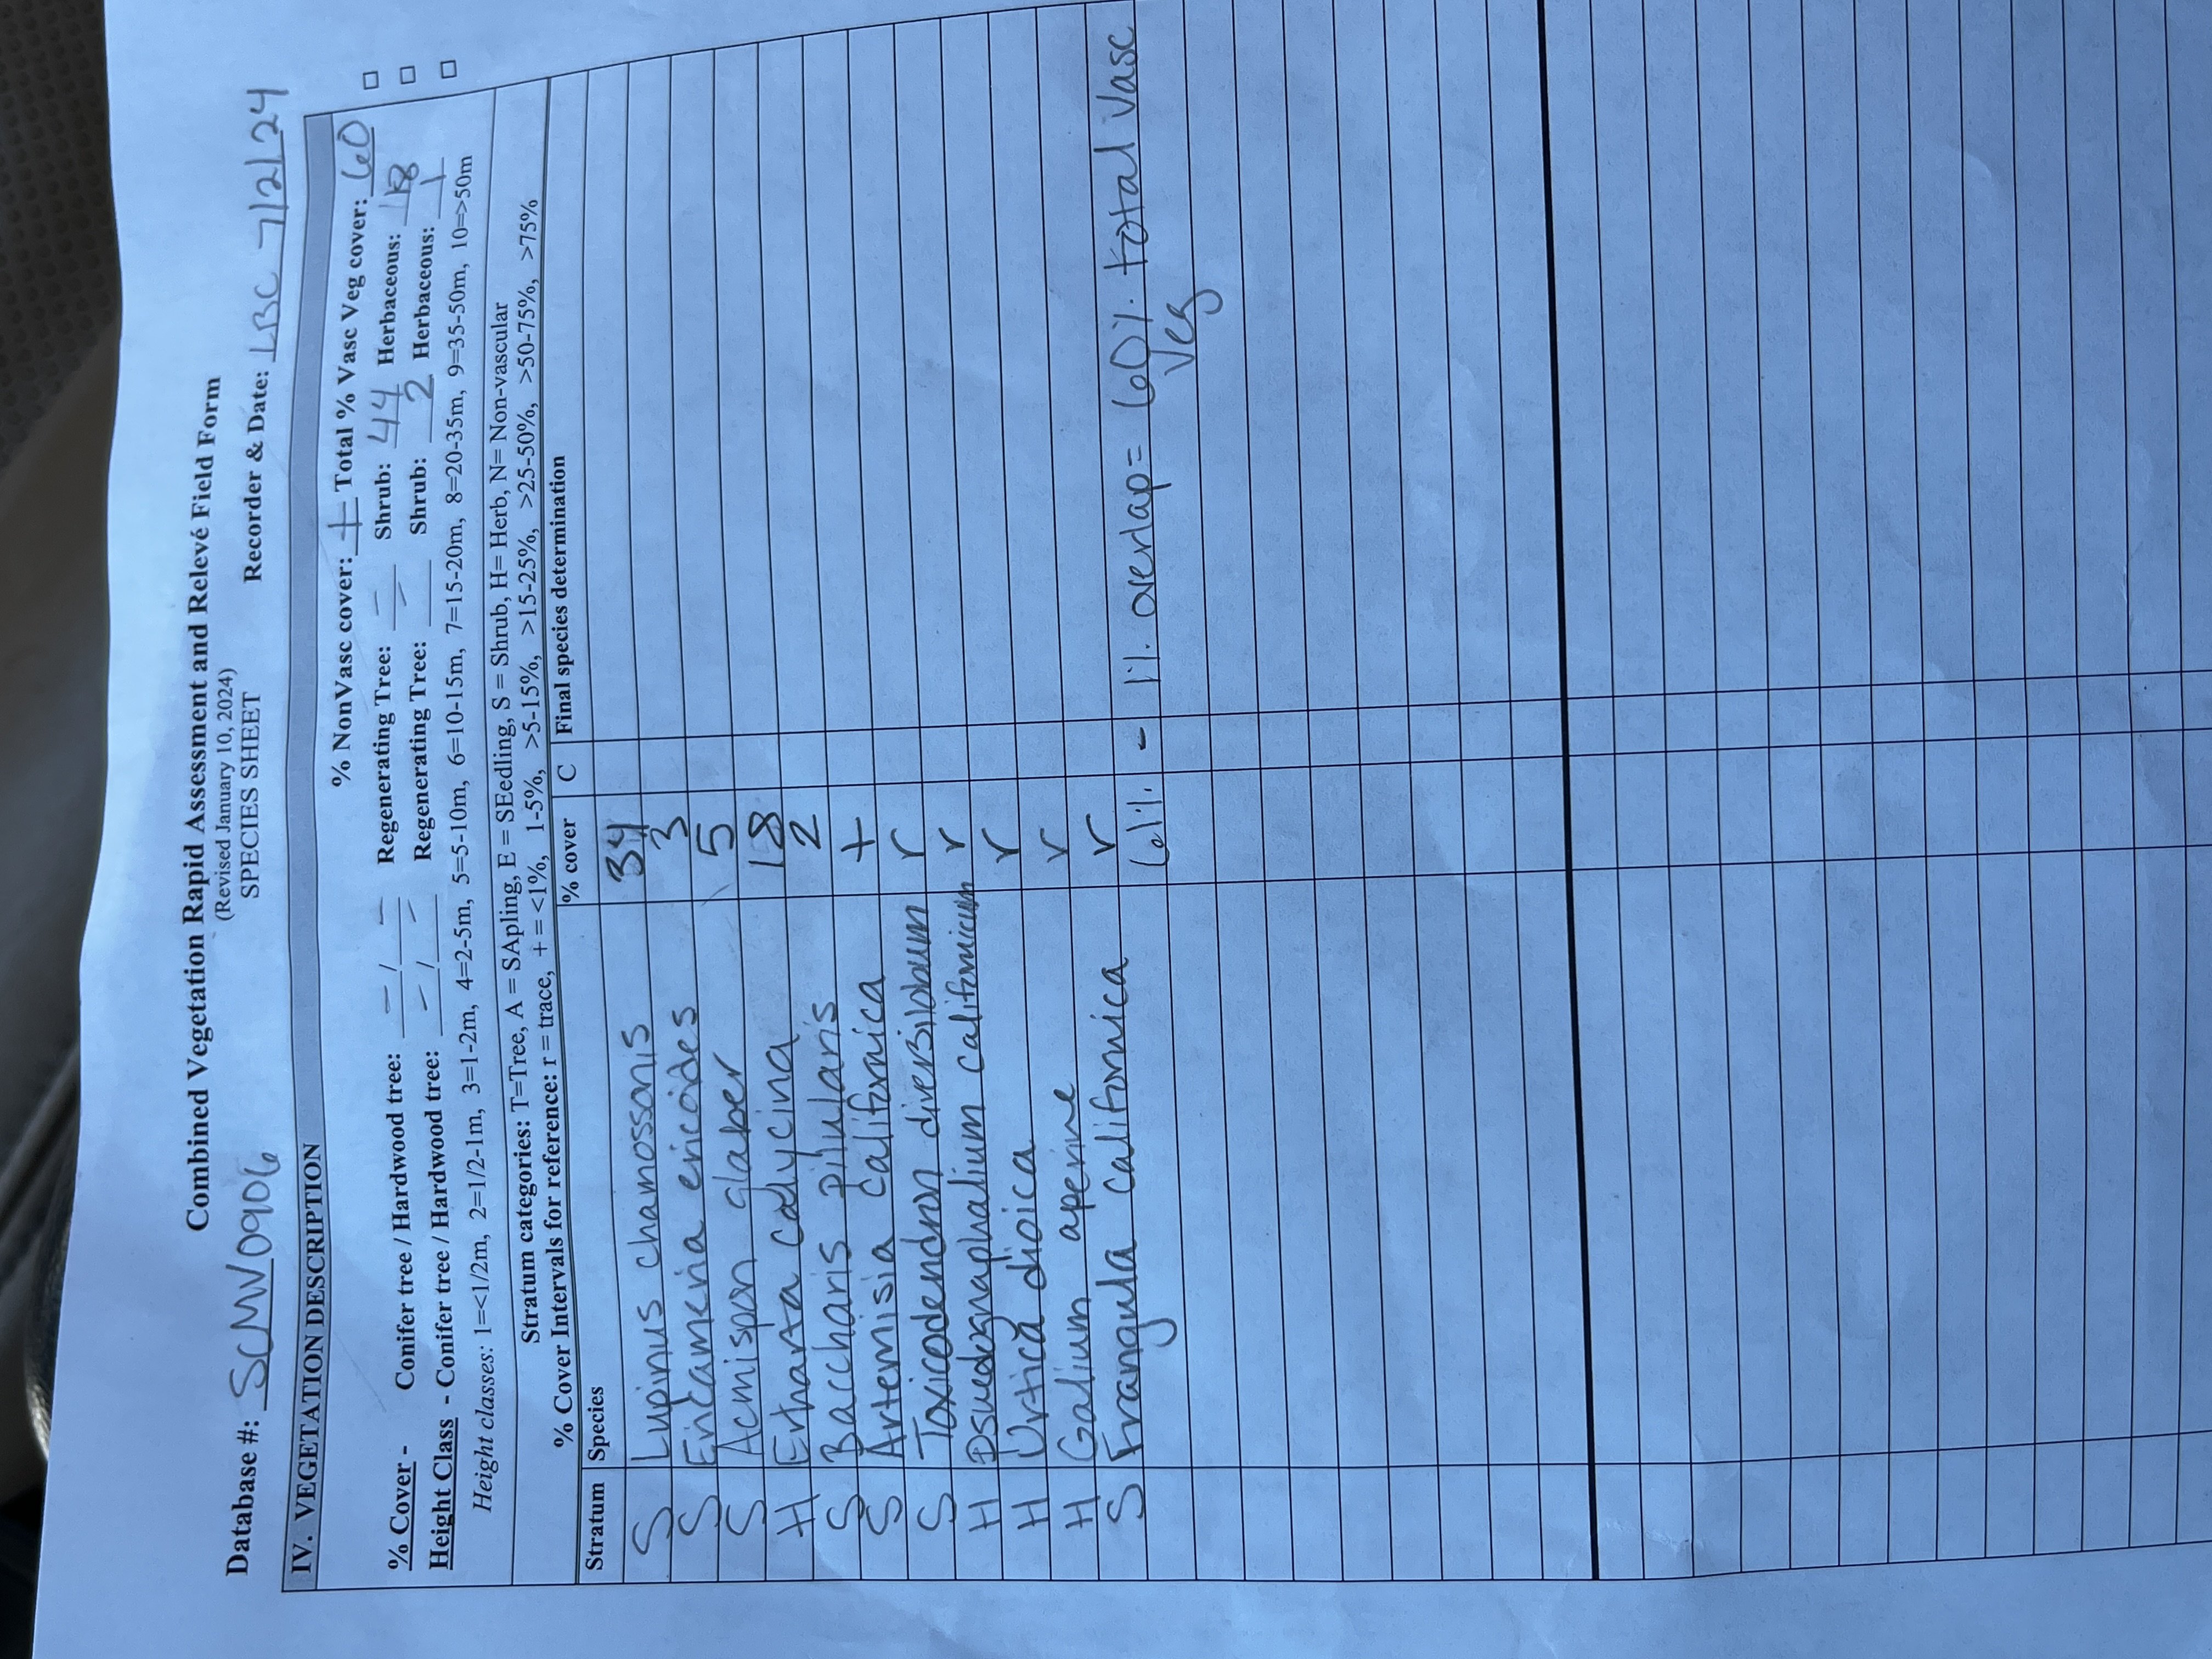 Combined Vegetation Rapid Assessment and Relevé Field Form
(Revised January 10, 2024)
SPECIES SHEET
Database #: SCMV0906 Recorder & Date: LBC 7/2/24
IV. VEGETATION DESCRIPTION
% NonVasc cover: + Total % Vasc Veg cover: 60 □
% Cover - Conifer tree / Hardwood tree: - / - Regenerating Tree: - Shrub: 44 Herbaceous: 18 □
Height Class - Conifer tree / Hardwood tree: - / - Regenerating Tree: - Shrub: 2 Herbaceous: 1 □
Height classes: 1=<1/2m, 2=1/2-1m, 3=1-2m, 4=2-5m, 5=5-10m, 6=10-15m, 7=15-20m, 8=20-35m, 9=35-50m, 10=>50m
Stratum categories: T=Tree, A = SApling, E = SEedling, S = Shrub, H= Herb, N= Non-vascular
% Cover Intervals for reference: r = trace, + = <1%, 1-5%, >5-15%, >15-25%, >25-50%, >50-75%, >75%
Stratum Species % cover C Final species determination
S Lupinus chamossonis 34
S Ericameria ericoides 3
S Acmispon glaber 5
H Erharta calycina 18
S Baccharis pilularis 2
S Artemisia californica +
S Toxicodendron diversilobum r
H Psuedognaphalium californicum r
H Urtica dioica r
H Galium aperine r
S Frangula californica r
61% - 1% overlap = 60% total Vasc
Veg